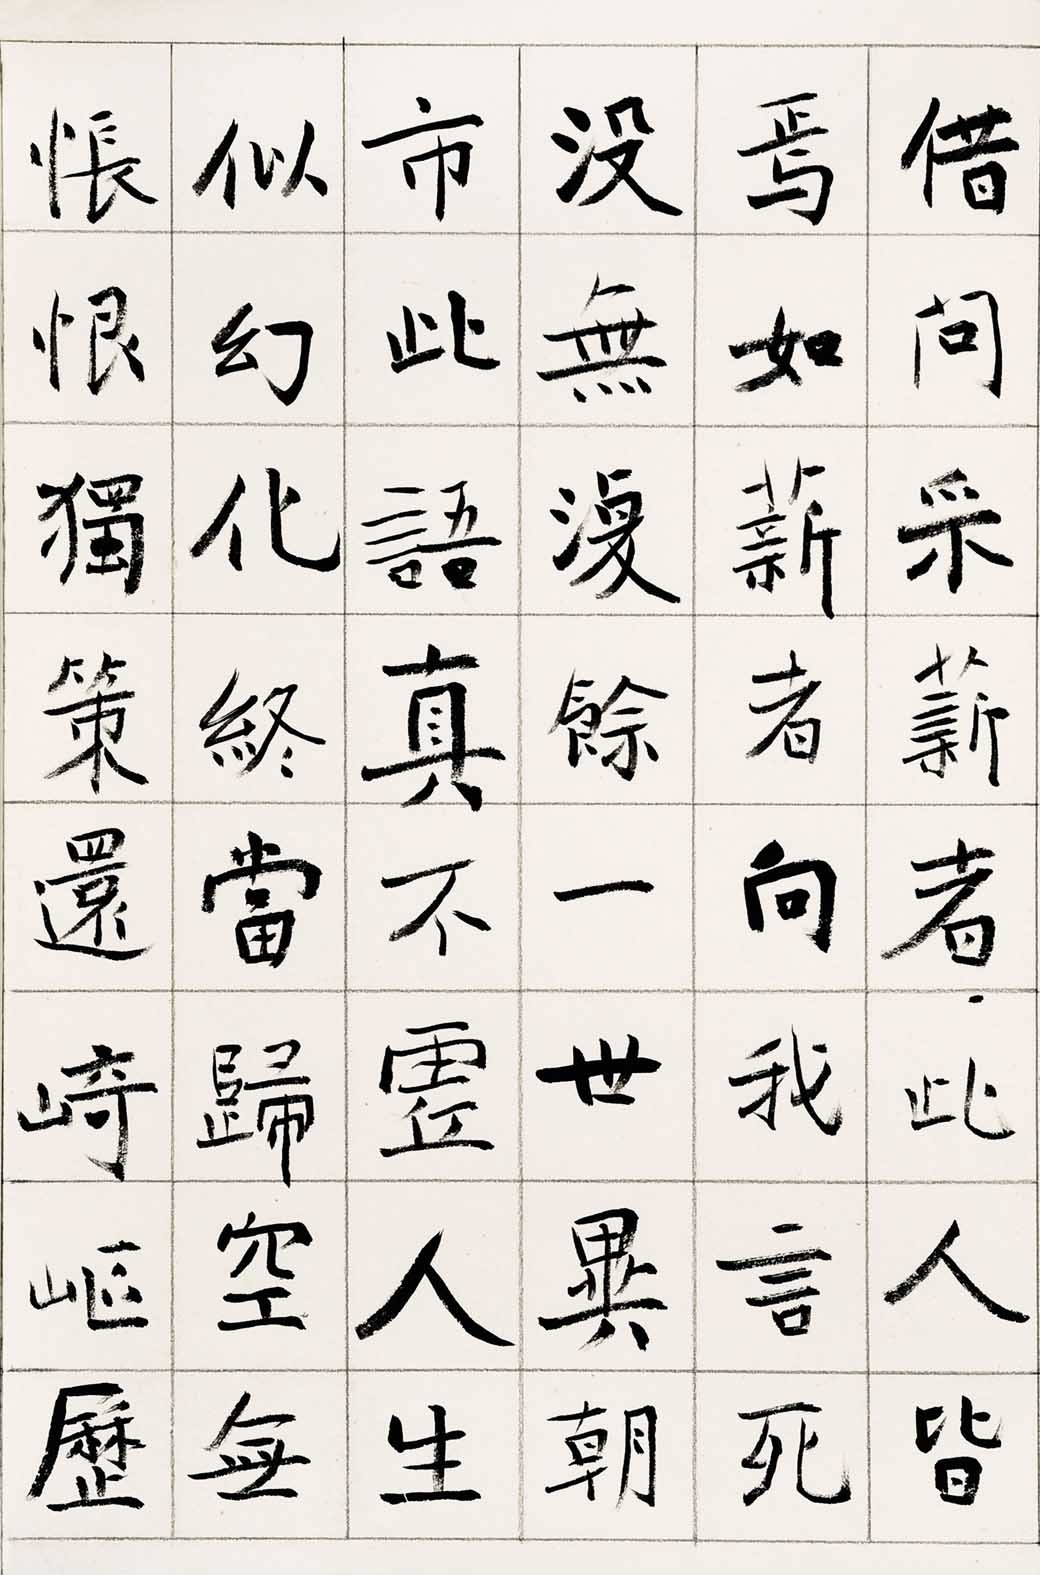 借問采薪者此人皆
焉如薪者向我言死
没無復餘一世異朝
市此語真不虛人生
似幻化終當歸空無
悵恨獨策還崎嶇歷